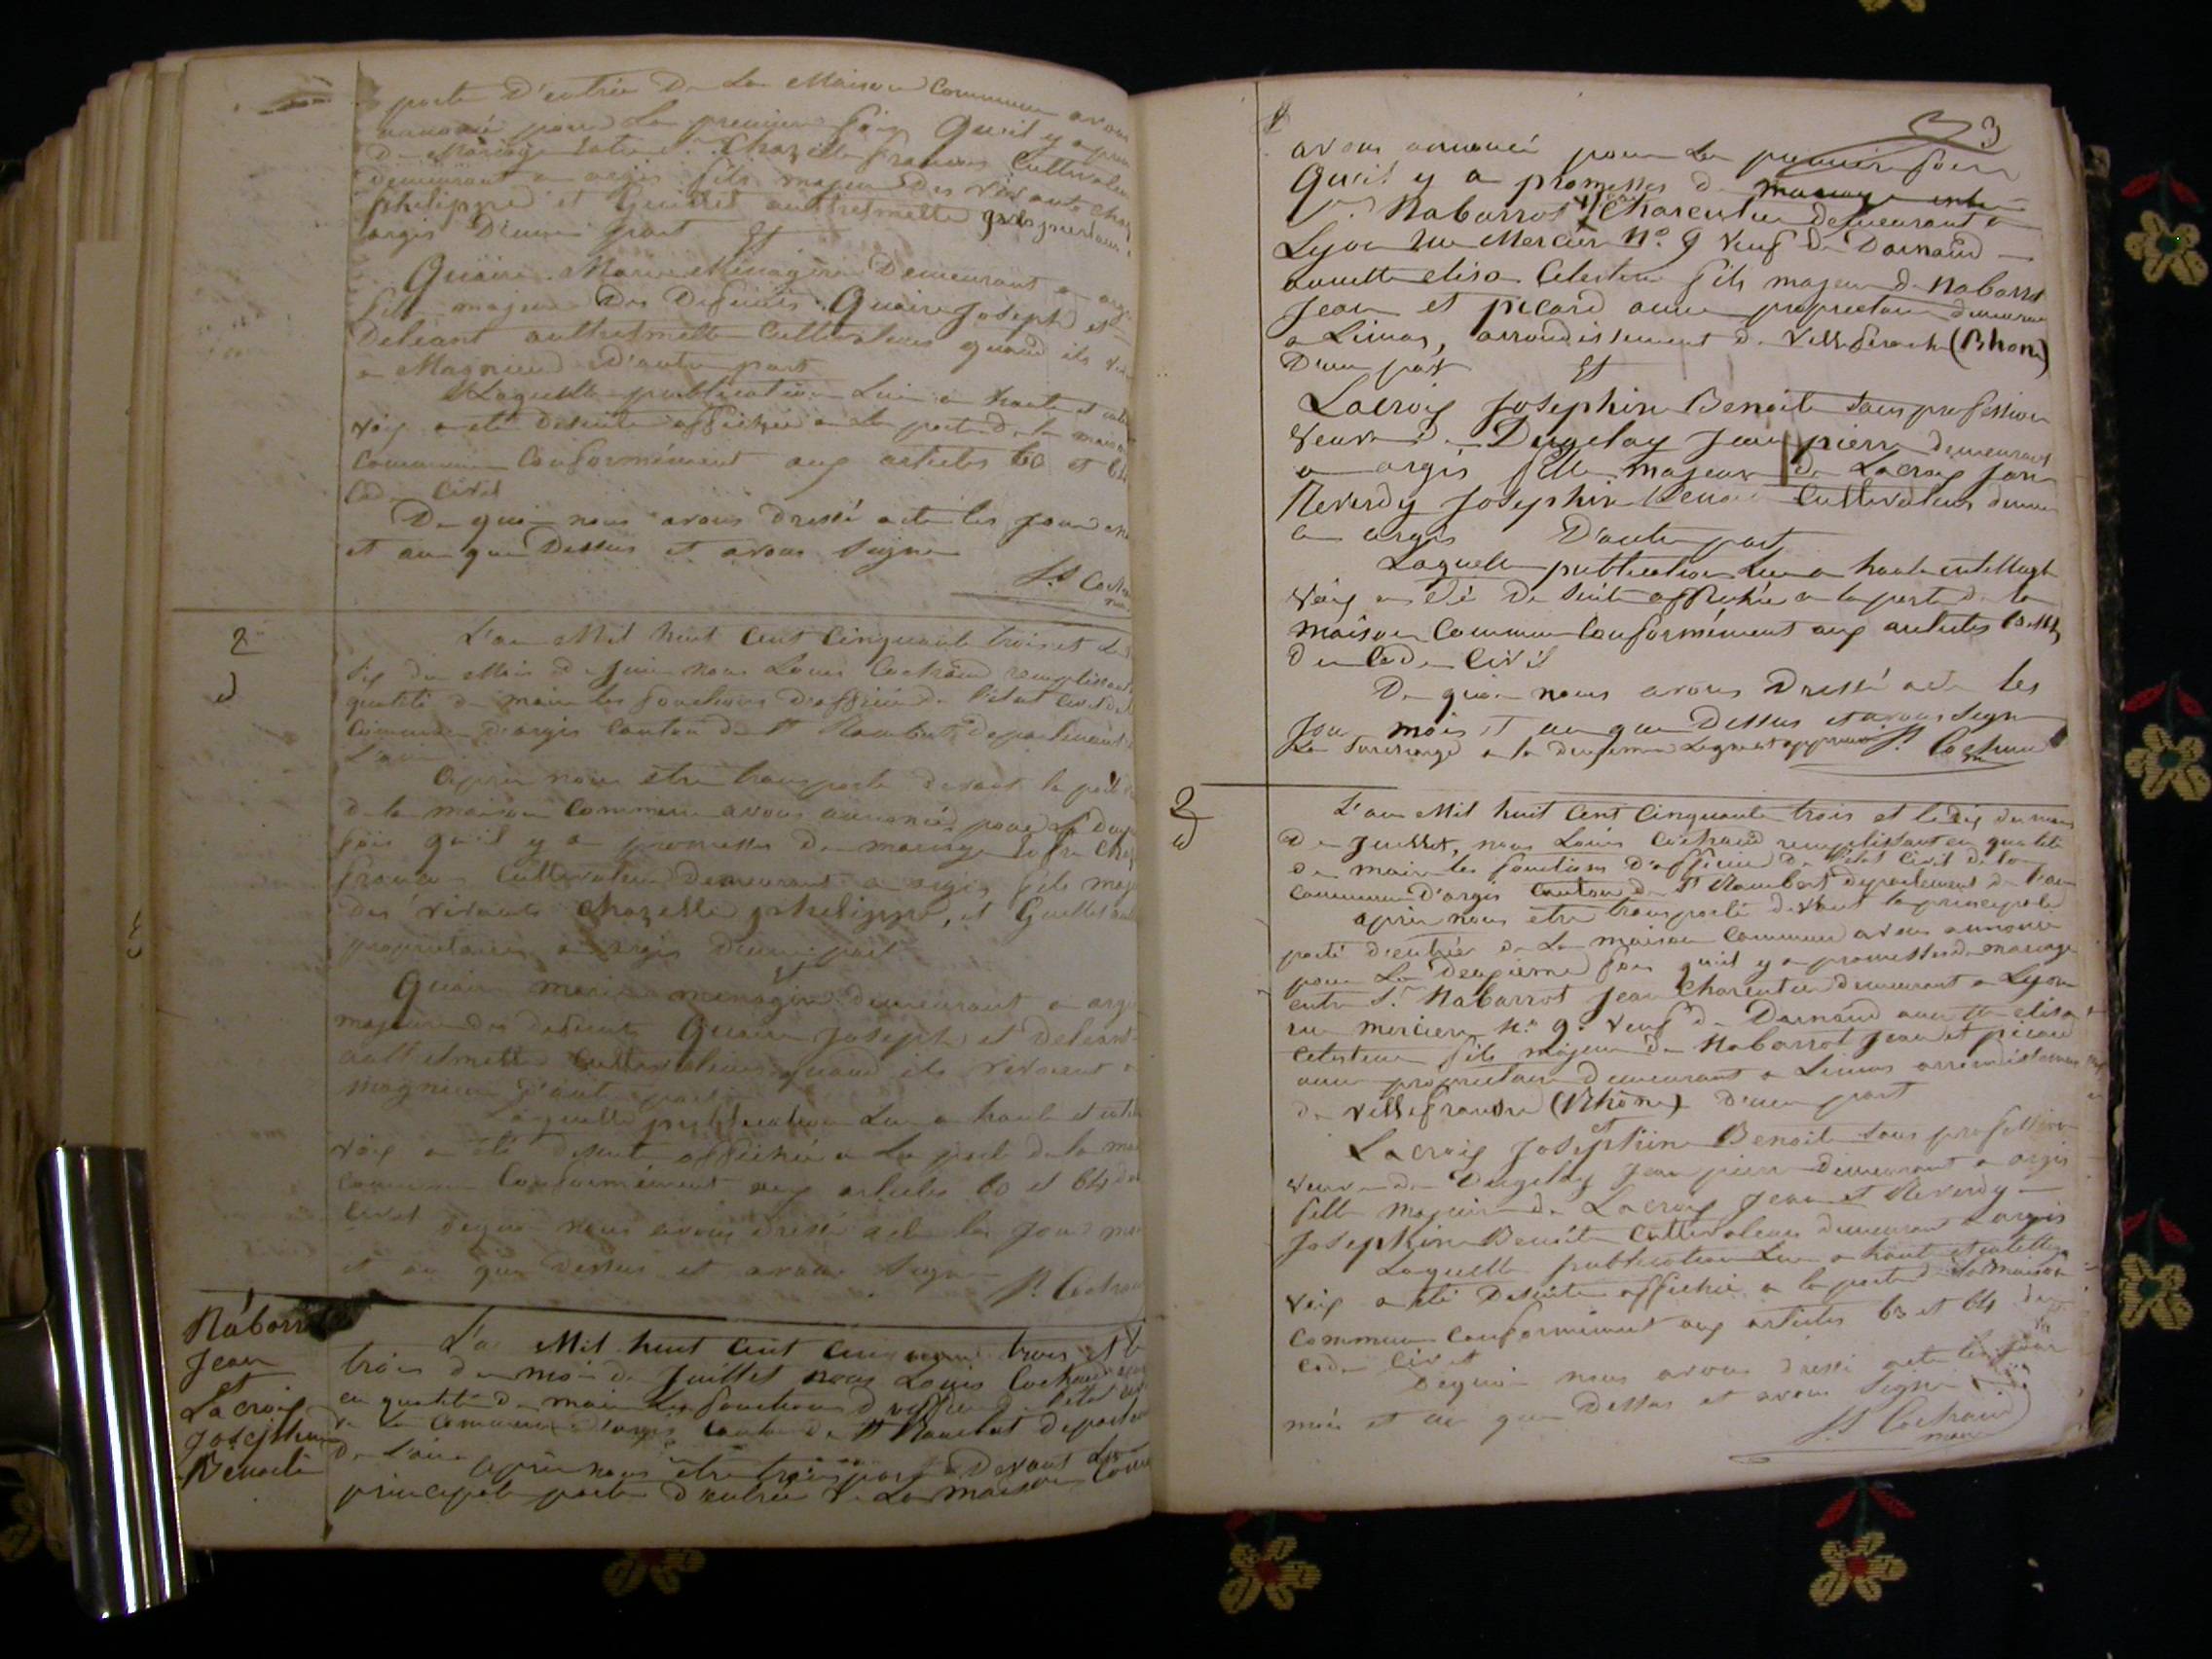 porte D'entrée De La Maison Commune avons
annoncé pour La premiere fois Qu'il y a pro
De Mariage Entre Sr. Chazelle francois Cultivateur
Demeurant a argis fils majeur Des vivants Chaz
philippe et Guillet anthelmette proprietaires
argis D'une part Et
Quaire Marie Ménagère Demeurant a argis
fille majeure Des Defunts Quaire Joseph et
Deléant anthelmette Cultivateurs quand ils viv
a Magnieu D'autre part
Laquelle publication Lue a haute et inte
voix a été De suite affichée a La porte De la maison
Commune Conformément aux articles 63 et 64
Code Civil
De quoi nous avons Dressé acte les jour
et an que Dessus et avons Signé
Ls Cochaud
2
L'an Mil huit Cent Cinquante trois et Le
Dix du Mois de Juin nous Louis Cochaud remplissant
qualité de maire les fonctions D'officier De l'état civil De
Commune D'argis Canton De St Rambert Département
L'ain
Après nous être transporté devant la porte
de la maison Commune avons annoncé pour La Deux
fois qu'il y a promesses De mariage Entre Chaz
francois Cultivateur Demeurant a argis fils maj
des vivants Chazelle philippe, et Guillet anth
propriétaires a argis D'une part
Et
Quaire marie ménagère demeurant a argis
majeure Des defunts Quaire Joseph et Deleant
anthelmette Cultivateurs quand ils vivaient a
magnieu D'autre part
Laquelle publication Lue a haute et inte
voix a été De suite affichée a La porte De la mai
commune Conformément aux articles 63 et 64 du
Civil
De quoi nous avons dressé acte les Jour moi
et an que Dessus et avons Signé
Ls Cochaud
Nabarrot
Jean
et
Lacroix
Josephine
Benoite
L'an Mil huit Cent Cinquante trois et le
trois du mois de Juillet nous Louis Cochaud
en qualité De maire Les fonctions D'officier De l'état civil
De La Commune D'argis Canton De St Rambert departement
De L'ain
après nous être transporté Devant La
principale porte D'entrée De La maison Comm
3
avons annoncé pour La premiere fois
Qu'il y a promesses De mariage entre
Sr. Nabarrot Jean Charcutier demeurant a
Lyon rue Mercière No. 9 veuf De Darnaud
annette elisa Celestine fils majeur De Nabarrot
Jean et picard anne propriétaires demeurant
a Limas, arrondissement De Villefranche (Rhone)
D'une part Et
Lacroix Josephine Benoite Sans profession
veuve De Dugelay Jean pierre demeurant
a argis fille majeure De Lacroix Jean
Reverdy Josephine Benoite Cultivateurs demeu
a argis D'autre part
Laquelle publication Lue a haute intelligible
voix a été De suite affichée a la porte de la
maison Commune Conformément aux articles 63 et 64
du Code Civil
De quoi nous avons Dressé acte les
Jour mois et an que Dessus et avons Signé
La Surcharge a la deuxième Ligne est approuvée Ls Cochaud
2
L'an Mil huit Cent Cinquante trois et le dix du mois
De Juillet, nous Louis Cochaud remplissant en qualité
De maire les fonctions D'officier De l'état Civil de la
Commune D'argis Canton De St Rambert departement De l'ain
après nous être transporté devant la principale
porte d'entrée De La maison Commune avons annoncé
pour La Deuxième fois qu'il y a promesses de mariage
entre Sr. Nabarrot Jean Charcutier demeurant a Lyon
rue merciere No. 9. veuf De Darnaud annette elisa
Celestine fils majeur De Nabarrot Jean et picard
anne propriétaires Demeurant a Limas arrondissement
De Villefranche (Rhone) D'une part
et
Lacroix Josephine Benoite Sans profession
veuve De Dugelay Jean pierre demeurant a argis
fille majeure De Lacroix Jean et Reverdy
Josephine Benoite Cultivateurs demeurant a argis
Laquelle publication Lue a haute et intelligible
voix a été De suite affichée a la porte De La Maison
Commune Conformément aux articles 63 et 64 du
Code Civil
De quoi nous avons dressé acte les jour
mois et an que Dessus et avons Signé
Ls Cochaud
maire